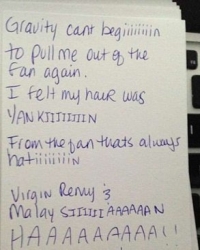 Gravity cant begiiiiiiiin
to pull me out of the
fan again.
I felt my hair was
YANKIIIIIIIN
From the fan thats always
hatiiiiiiiin
Virgin Remy &
Malay SIIIIIIAAAAAAN
HAAAAAAAAAA!!